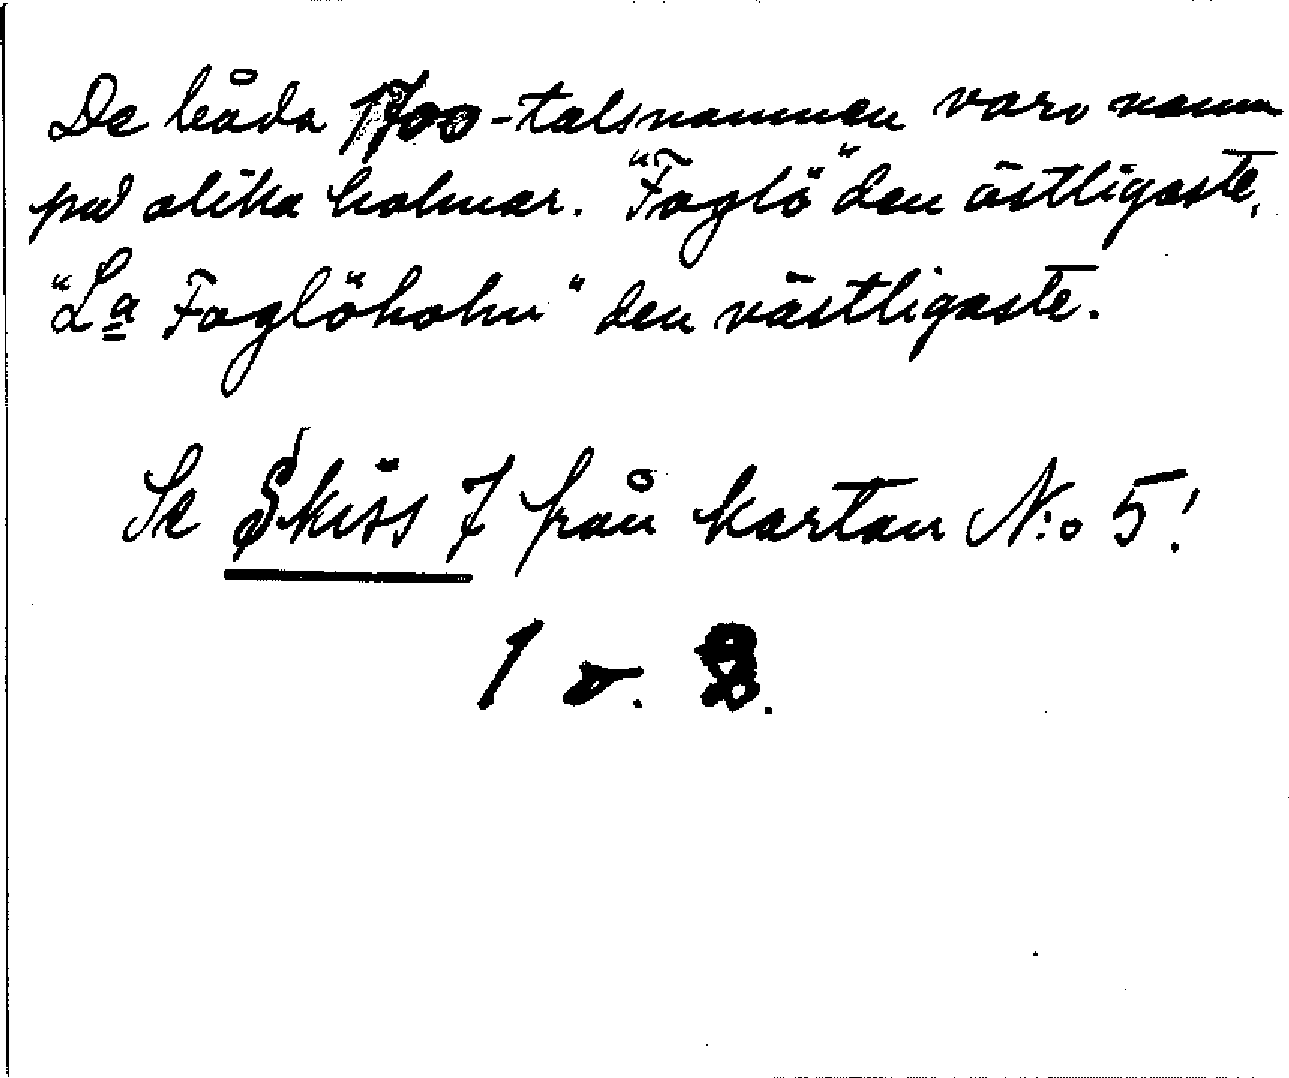 De båda 1700-talsnamnen voro namn
på olika holmar. "Foglö" den östligaste,
"La Foglöholm" den västligaste.
Se Skiss 7 från kartan N:o 5!
1 o. 2.